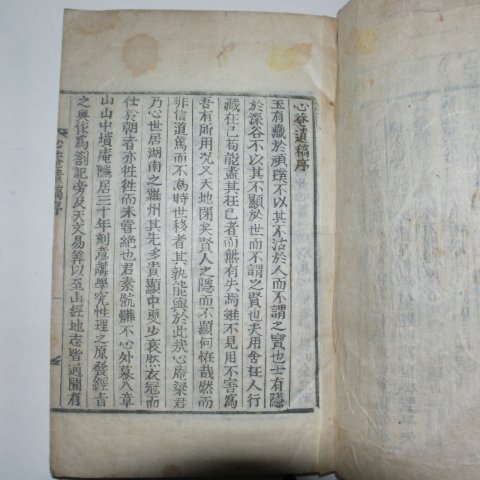 心菴遺稿序
玉有藏於頑璞不以其不沽於人而不謂之寶也士有隱
於深谷不以其不顯於世而不謂之賢也夫用舍在人行
藏在已苟能盡其在已者而無有失焉雖不見用不害爲
吾有所用况又天地閉矣賢人之隱而不顯何恠哉然而
非信道篤而不爲時世移者其孰能與於此哉心庵梁君
乃心世居湖南之羅州其先多貴顯中更步衰然衣冠而
仕於朝者亦徃徃而未嘗絶也君素骯髒不心外慕入章
山山中墳庵隱居三十年刻意講學究性理之原發經旨
之奥作爲劄記旁及天文易筭以至山經地志皆通關有
心菴遺稿序